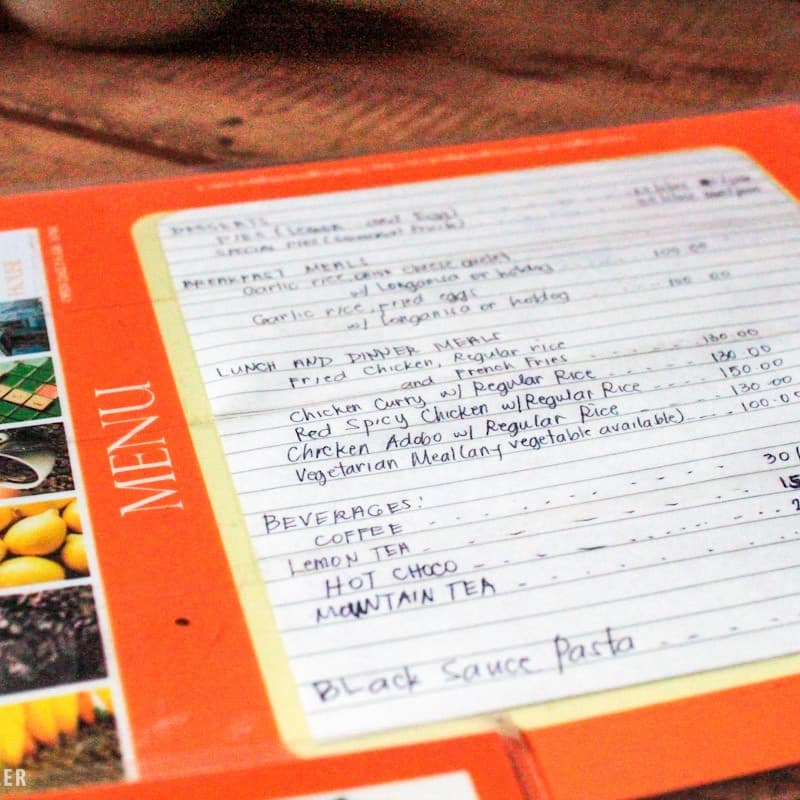 MENU
DESSERTS
PIES (Lemon and Egg)
BREAKFAST MEALS
Garlic rice,
w/ Longanisa or hotdog 100.00
Garlic rice, fried eggs
w/ Longanisa or hotdog 100.00
LUNCH AND DINNER MEALS
Fried Chicken, Regular rice
and French Fries - - - - - 130.00
Chicken Curry w/ Regular Rice - - - - 130.00
Red Spicy Chicken w/Regular Rice - - - - 150.00
Chicken Adobo w/ Regular Rice - - - - 130.00
Vegetarian Meal(any vegetable available) - - - - 100.00
BEVERAGES:
COFFEE - - - - - - - 30
LEMON TEA - - - - - - 15
HOT CHOCO - - - - - - 2
MOUNTAIN TEA - - - - - -
BLack Sauce Pasta - - - -
ER